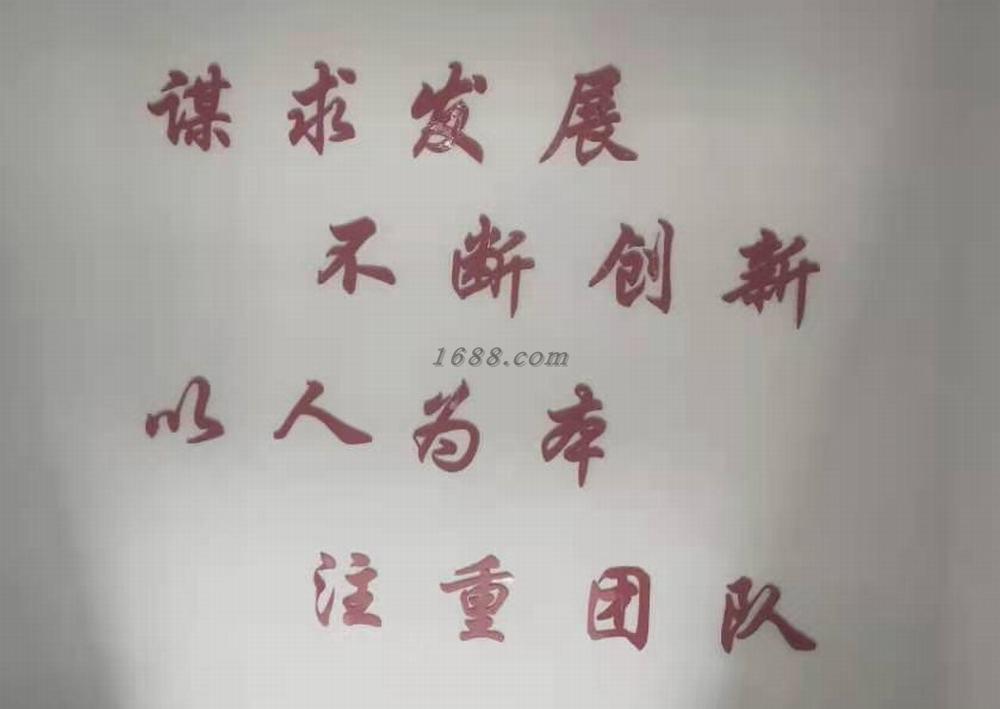 谋求发展
不断创新
1688.com
以人为本
注重团队